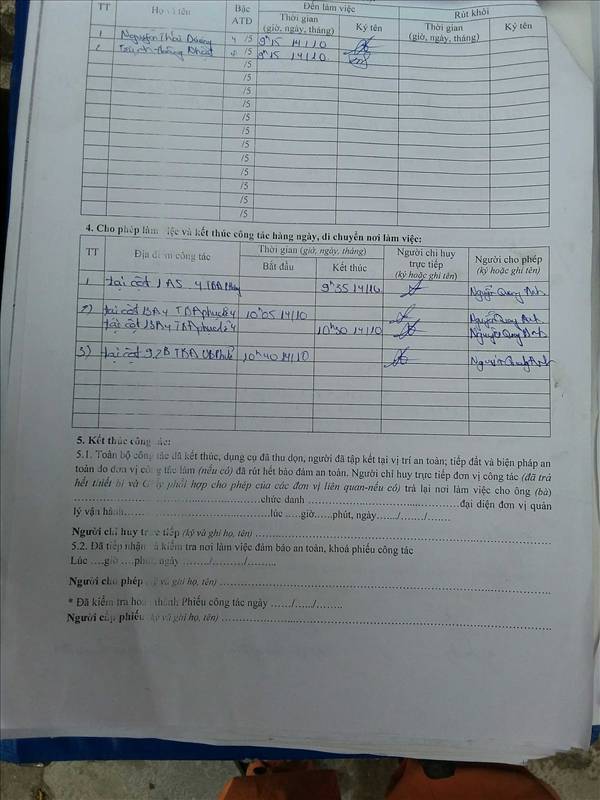 TT Họ và tên Bậc ATD Đến làm việc Rút khỏi
Thời gian (giờ, ngày, tháng) Ký tên Thời gian (giờ, ngày, tháng) Ký tên
1 Nguyễn Thái Dương 4 /5 9h15 14/10
2 Trịnh Nhật /5 9h15 14/10
/5
/5
/5
/5
/5
/5
/5
/5
/5
/5
/5
/5
4. Cho phép làm việc và kết thúc công tác hàng ngày, di chuyển nơi làm việc:
TT Địa điểm công tác Thời gian (giờ, ngày, tháng) Người chỉ huy trực tiếp (ký hoặc ghi tên) Người cho phép (ký hoặc ghi tên)
Bắt đầu Kết thúc
1 tại cột 9h35 14/10 Nguyễn Quang Anh
2) tại cột 13A4 TBA 10h05 14/10 Nguyễn Quang Anh
tại cột 13A4 TBA 10h30 14/10 Nguyễn Quang Anh
3) tại cột 9.2B TBA 10h40 14/10 Nguyễn Quang Anh
5. Kết thúc công tác:
5.1. Toàn bộ công tác đã kết thúc, dụng cụ đã thu dọn, người đã tập kết tại vị trí an toàn; tiếp đất và biện pháp an
toàn do đơn vị công tác làm (nếu có) đã rút hết bảo đảm an toàn. Người chỉ huy trực tiếp đơn vị công tác (đã trả
hết thiết bị và Giấy phối hợp cho phép của các đơn vị liên quan-nếu có) trả lại nơi làm việc cho ông (bà)
..............................chức danh ..............................đại diện đơn vị quản
lý vận hành..............................lúc .....giờ.....phút, ngày....../....../......
Người chỉ huy trực tiếp (ký và ghi họ, tên) ..............................
5.2. Đã tiếp nhận và kiểm tra nơi làm việc đảm bảo an toàn, khoá phiếu công tác
Lúc ....giờ ....phút, ngày ......../......../........
Người cho phép (ký và ghi họ, tên) ..............................
* Đã kiểm tra hoàn thành Phiếu công tác ngày ....../....../........
Người cấp phiếu (ký và ghi họ, tên) ..............................